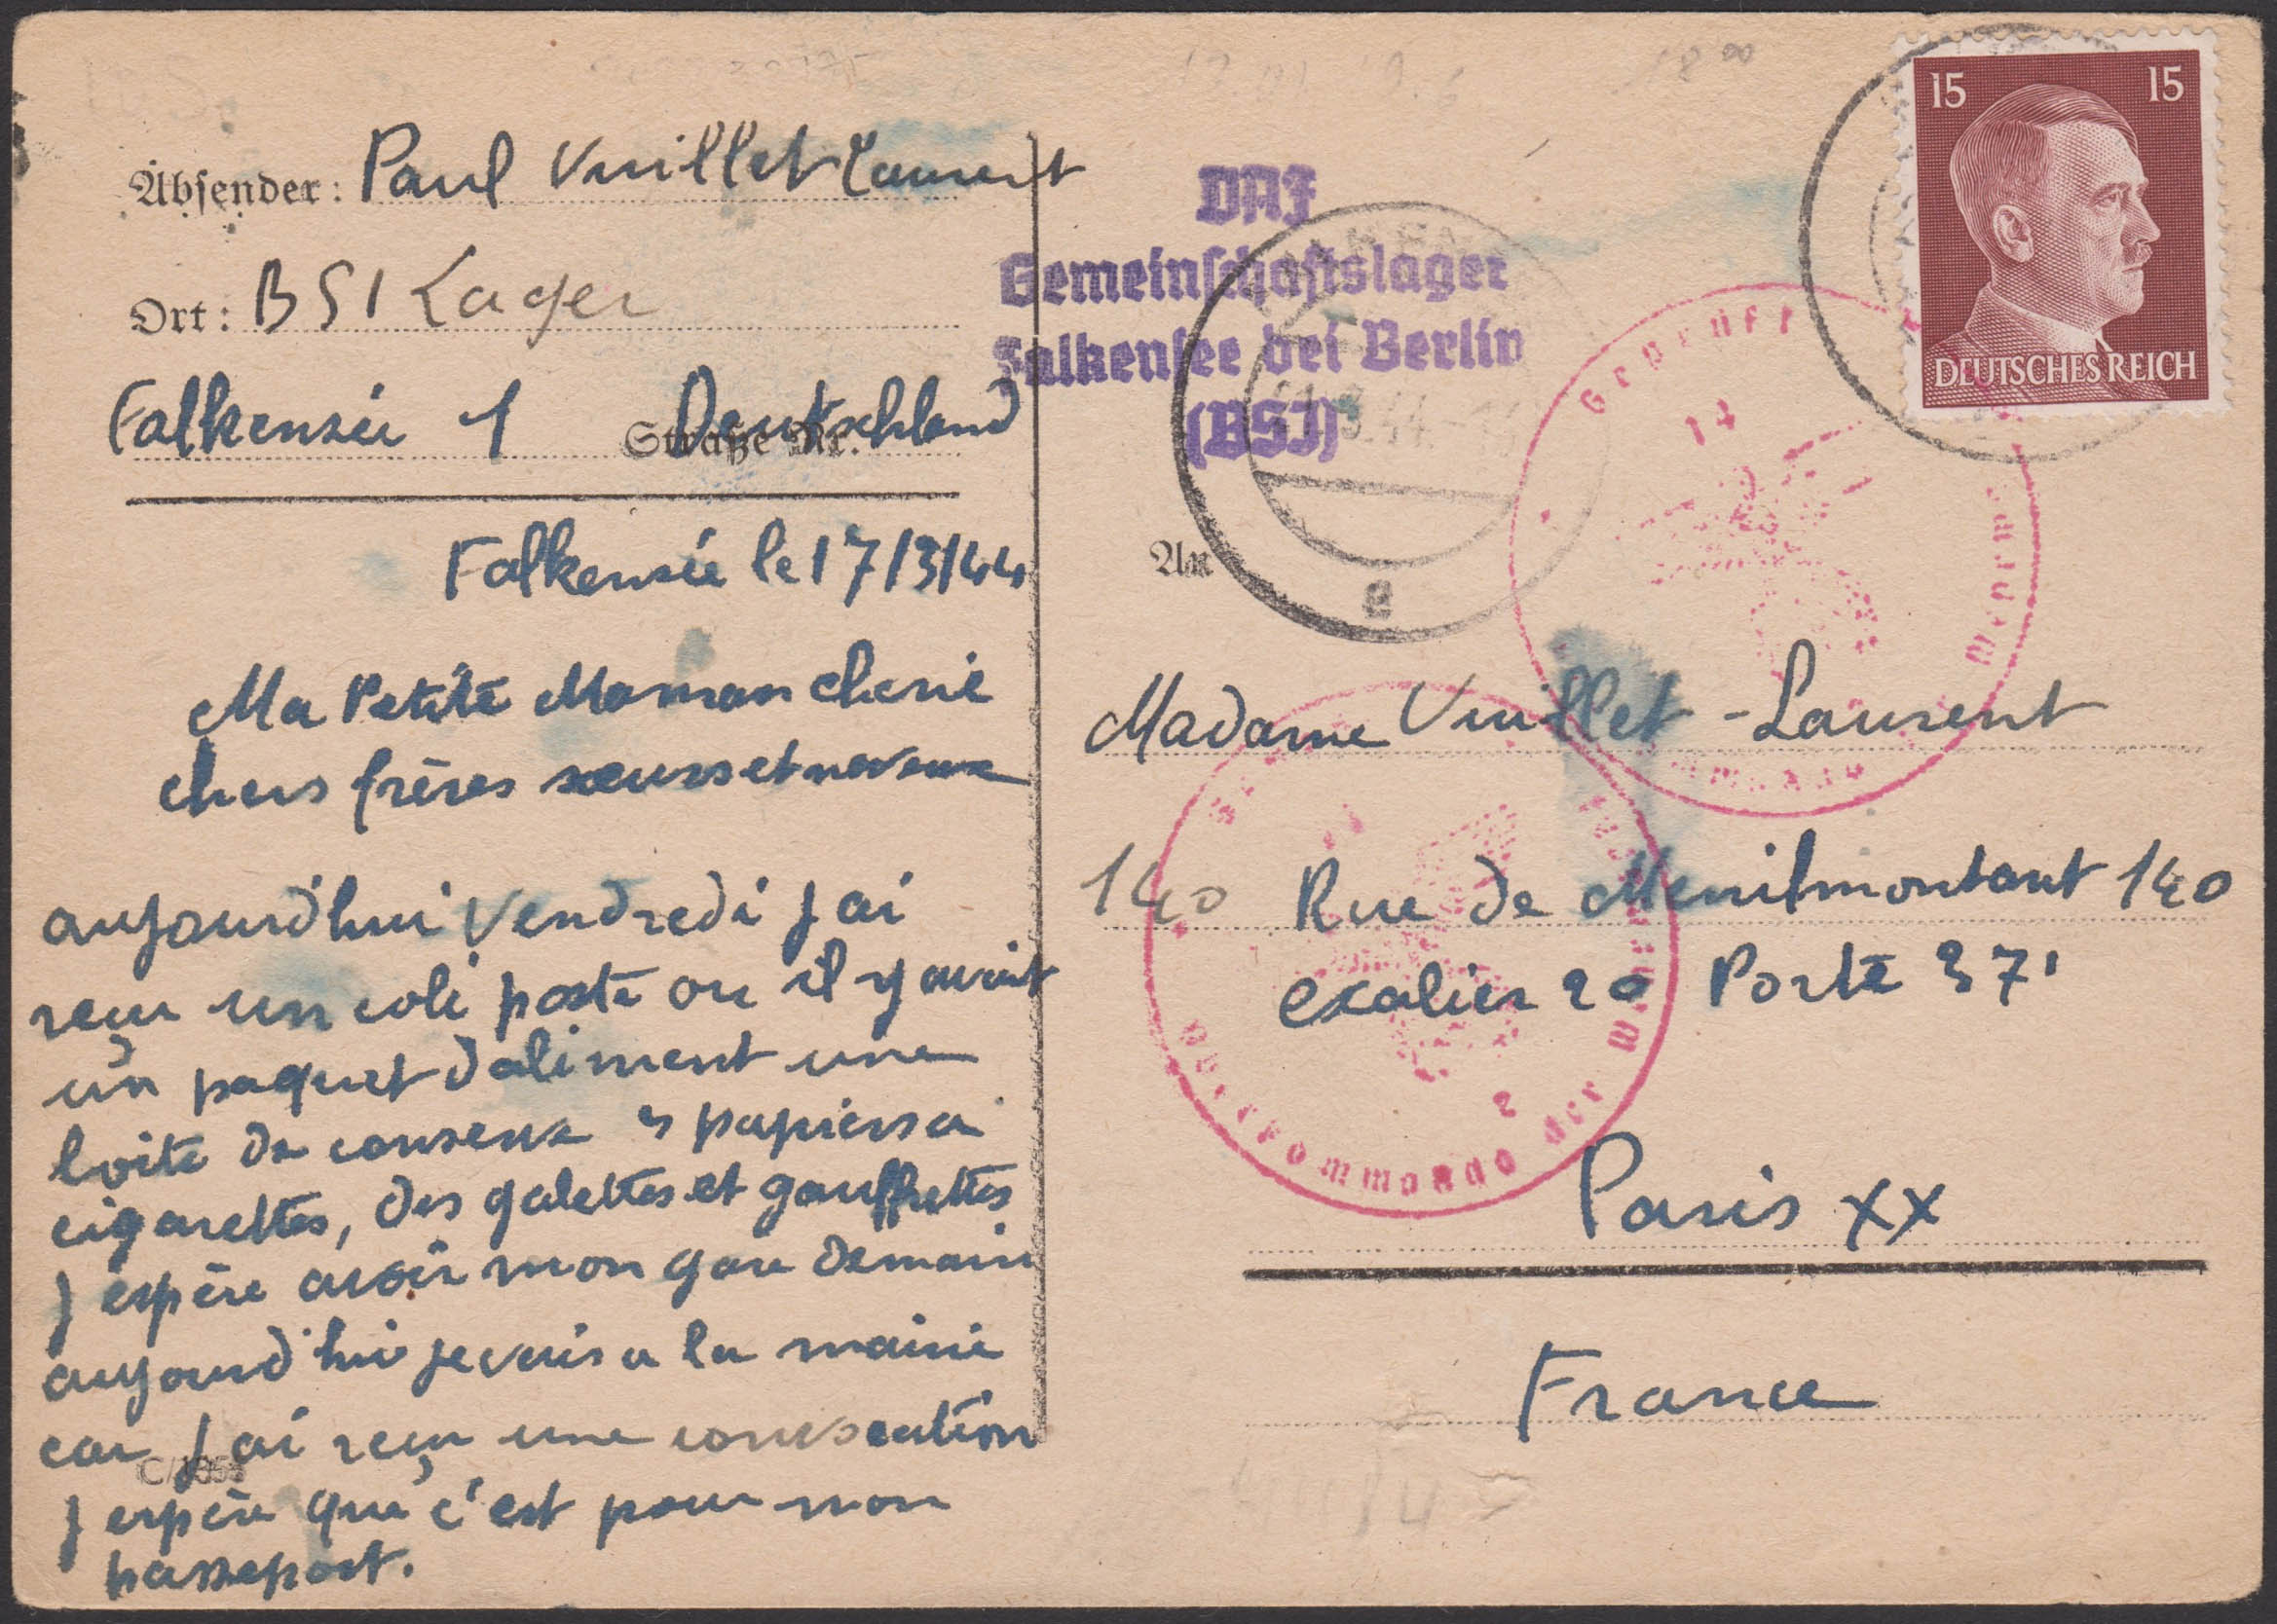 Absender: Paul Vuillet Laurent
Ort: BSI Lager
Falkensée 1 Deutschland
Straße Nr.
Falkensée le 17/3/44
Ma Petite Maman cherie
chers frères sœurs et neveux
aujourd'hui Vendredi j ai
reçu un coli poste ou il y avait
un paquet d aliment une
boite de conserve papiers a
cigarettes, des galettes et gauffrettes
j espère avoir mon demain
aujourd'hui je vais a la mairie
car j ai reçu une convocation
j espère que c'est pour mon
passeport.
C/1053
DAF
Gemeinschaftslager
Falkensee bei Berlin
(BSI)
15 15
DEUTSCHES REICH
Geprüft
14
Wehrmacht
a
An
Madame Vuillet-Laurent
140 Rue de Menilmontant 140
escalier 20 Porte 371
Oberkommando der Wehrmacht
2
Paris XX
France
18 00